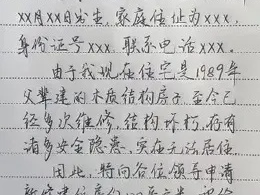 XX月XX日出生,家庭住址为XXX,
身份证号XXX,联系电话XXX。
由于我现在住宅是1989年
父辈建的木质结构房子,至今已
经多次维修,结构坏朽,存有
诸多安全隐患,实在无法居住
因此,特向各位领导申请